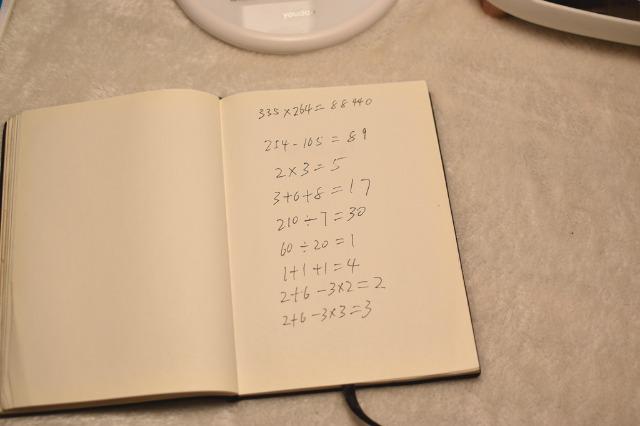 youdao
335×264=88440
214-105=89
2×3=5
3+6+8=17
210÷7=30
60÷20=1
1+1+1=4
2+6-3×2=2
2+6-3×3=3